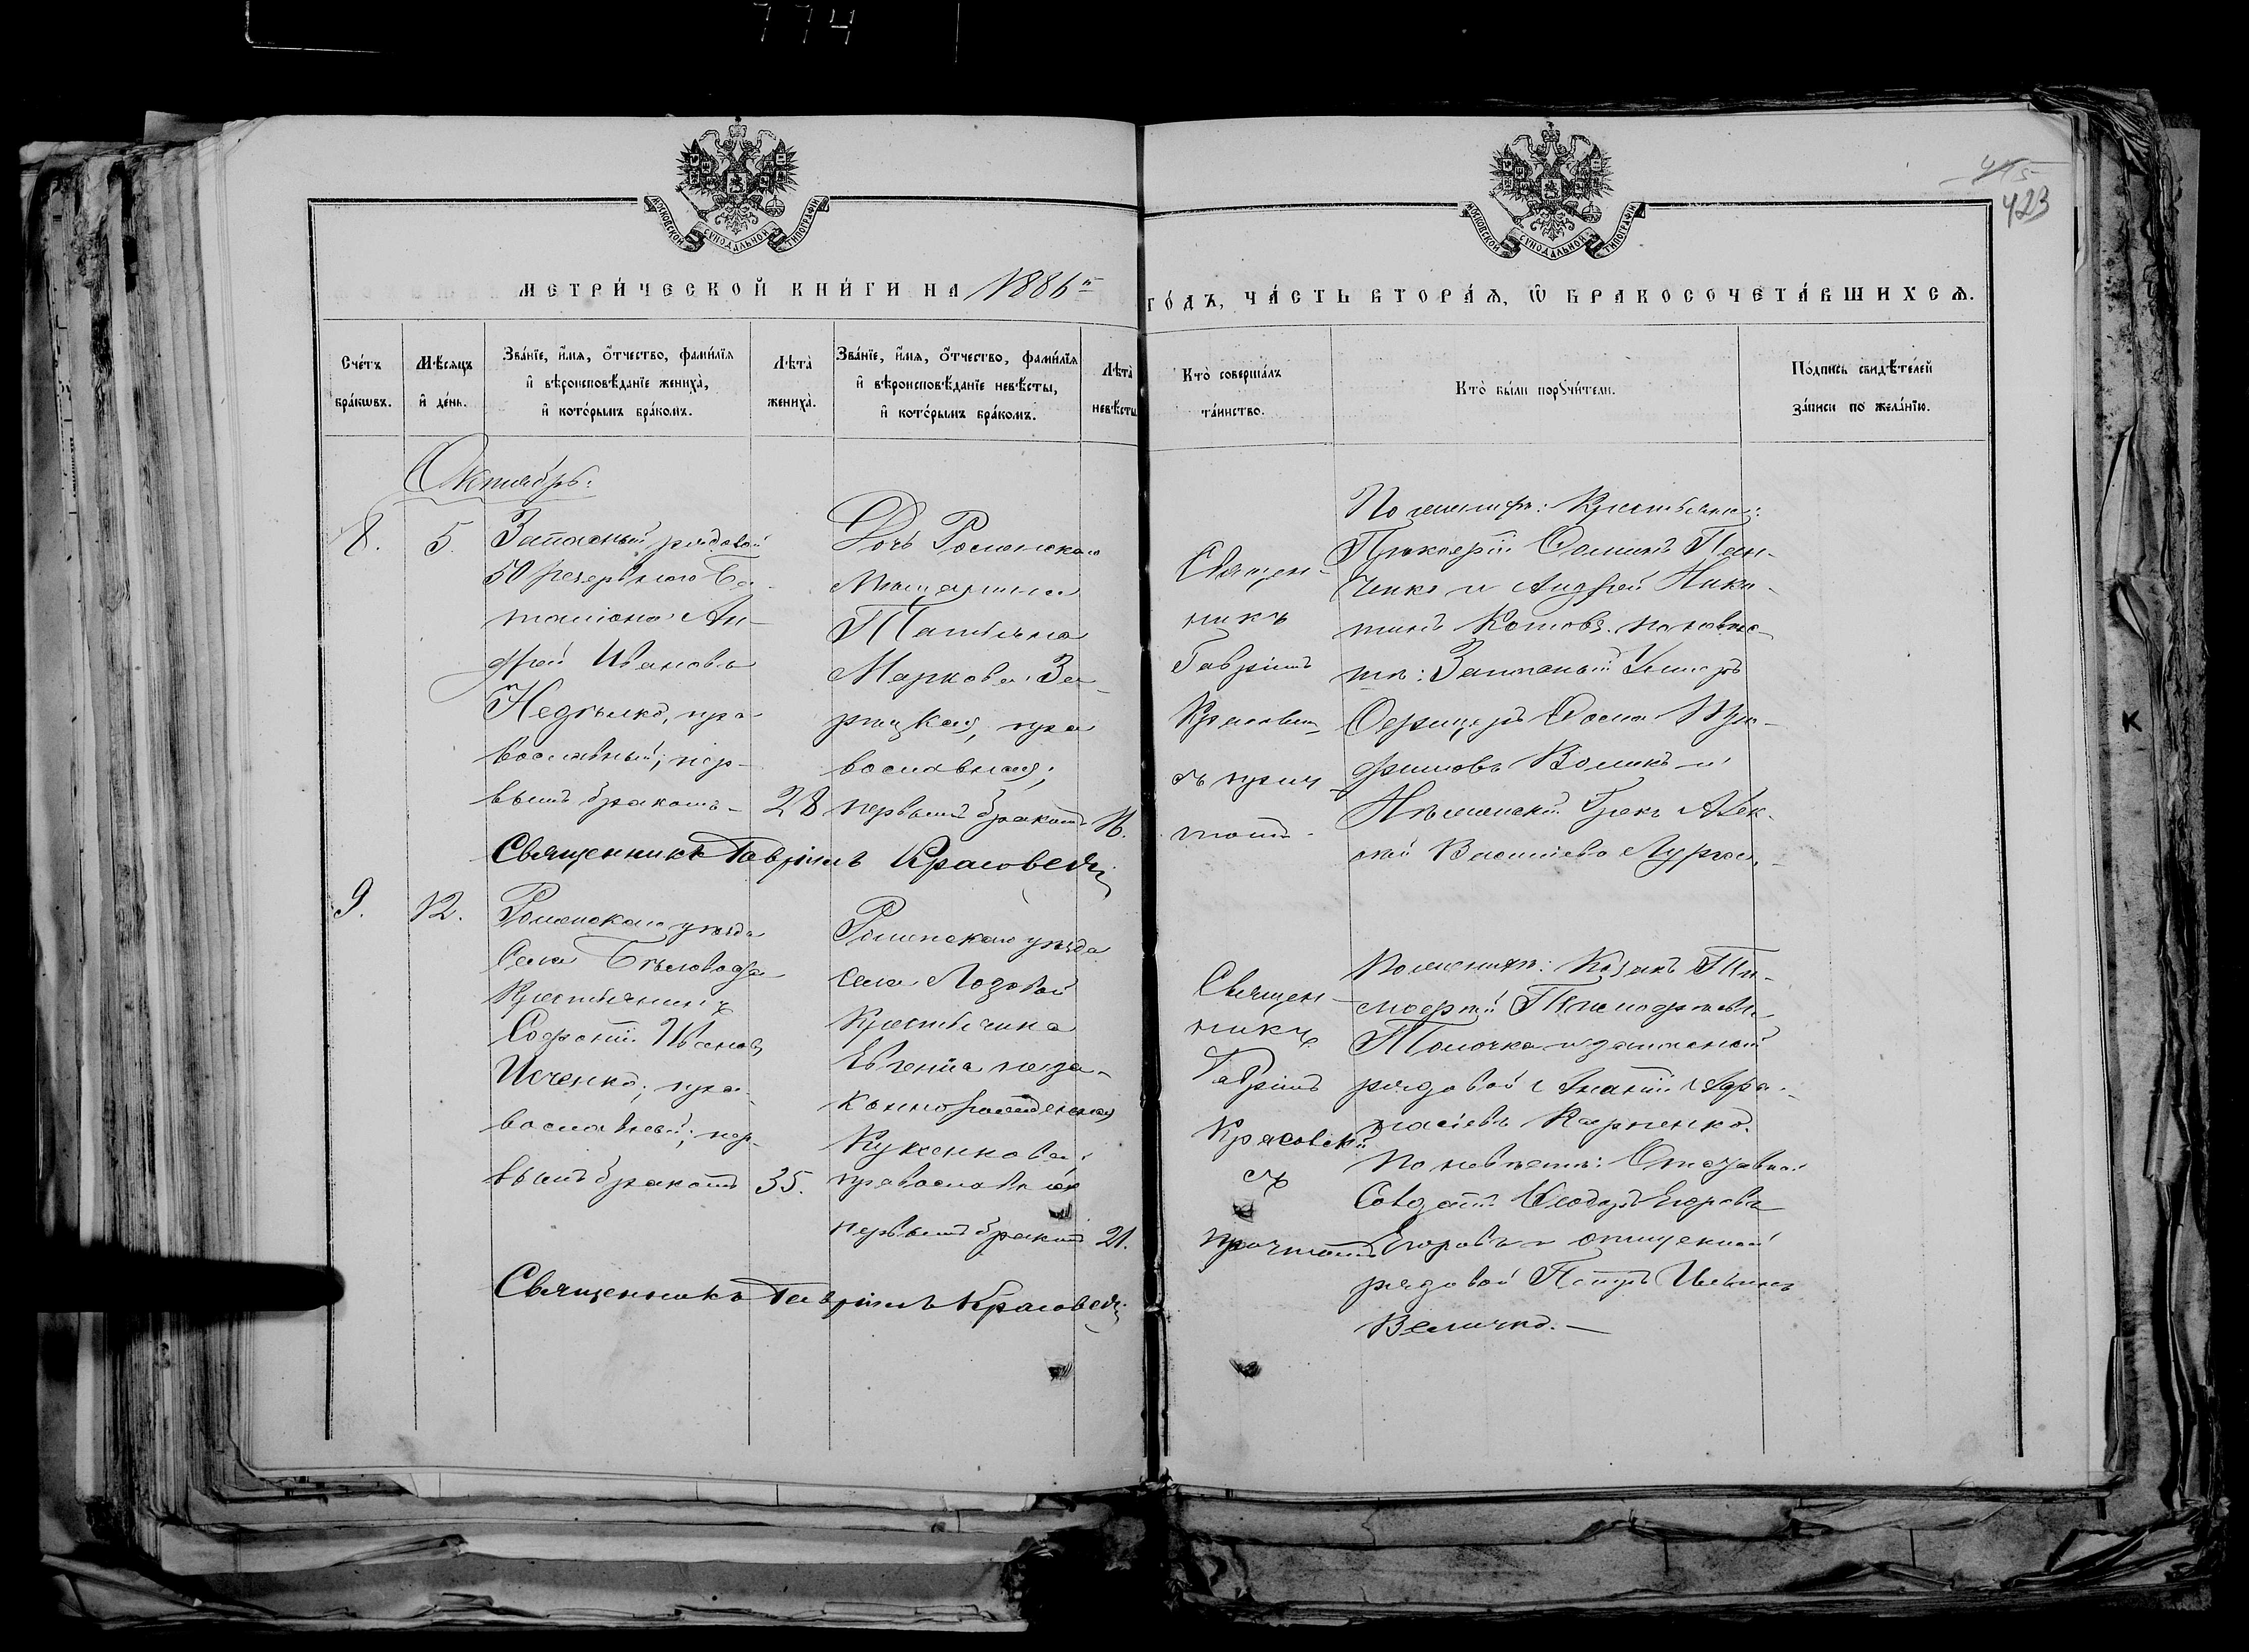 774
415
423
МОСКОВСКОЙ СѴНОДАЛЬНОЙ ТИПОГРАФІИ
МОСКОВСКОЙ СѴНОДАЛЬНОЙ ТИПОГРАФІИ
МЕТРИ́ЧЕСКОЙ КНИ́ГИ НА 1886й
ГО́ДЪ, ЧА́СТЬ ВТОРА́Ѧ, Ѡ҆ БРАКОСОЧЕТА́ВШИХСѦ.
Сче́тъ
бра́кωвъ.
Мѣ́сяцъ
и҆ де́нь.
Зва́нїе, и҆́мя, о҆́тчество, фами́лїя
и҆ вѣроисповѣ́данїе жениха̀,
и҆ кото́рымъ бра́комъ.
Лѣта̀
жениха̀.
Зва́нїе, и҆́мя, о҆́тчество, фами́лїя
и҆ вѣроисповѣ́данїе невѣ́сты,
и҆ кото́рымъ бра́комъ.
Лѣта̀
невѣ́сты
Кто̀ соверша́лъ
та́инство.
Кто̀ бы́ли порꙋчи́тели.
По́дпись свидѣ́телей
за́писи по жела́нїю.
Октябрь.
8.
5.
Запасный рядовой
50 резервнаго Ба-
таліона Ан-
дрей Ивановъ
Недѣлко, пра-
вославный; пер-
вымъ бракомъ
28
Дочь Роменскаго
Мѣщанина
Татьяна
Маркова За-
рицкая, пра
вославная;
первымъ бракомъ
Священ-
никъ
Гавріилъ
Красовскі
съ прич
томъ.
По женихѣ: Крестьяне:
Прокофій Ѳоминъ Пан-
ченко и Андрей Ники-
тинъ Котовъ. по невѣс-
тѣ: Запасный Унтеръ
Офицеръ Ѳома
Воликъ и
Нѣжинскій Грекъ Алек-
сѣй Василіевъ
Священникъ Гавріилъ Красовскій
9.
12.
Роменскаго уѣзда
Села Бѣловода
Крестьянинъ
Софроній Ивановъ
Исченко, пра-
вославный; пер-
вымъ бракомъ
35.
Роменскаго уѣзда
села Лозовой
Крестьянка
Евгенія неза-
коннорожденная
православная
первымъ бракомъ
21.
Священ-
никъ
Гавріилъ
Красовскій
съ
причтомъ
По женихѣ: Козакъ Ти-
мофей Тимофеевъ
Толочка и запасный
рядовой Игнатій Афа-
насіевъ Карпенко.
По невѣстѣ: Отставной
Солдатъ Ѳеодоръ Егоровъ
Егоровъ и отпускной
рядовой Петръ Ильинъ
Величко.—
Священникъ Гавріилъ Красовскій
К